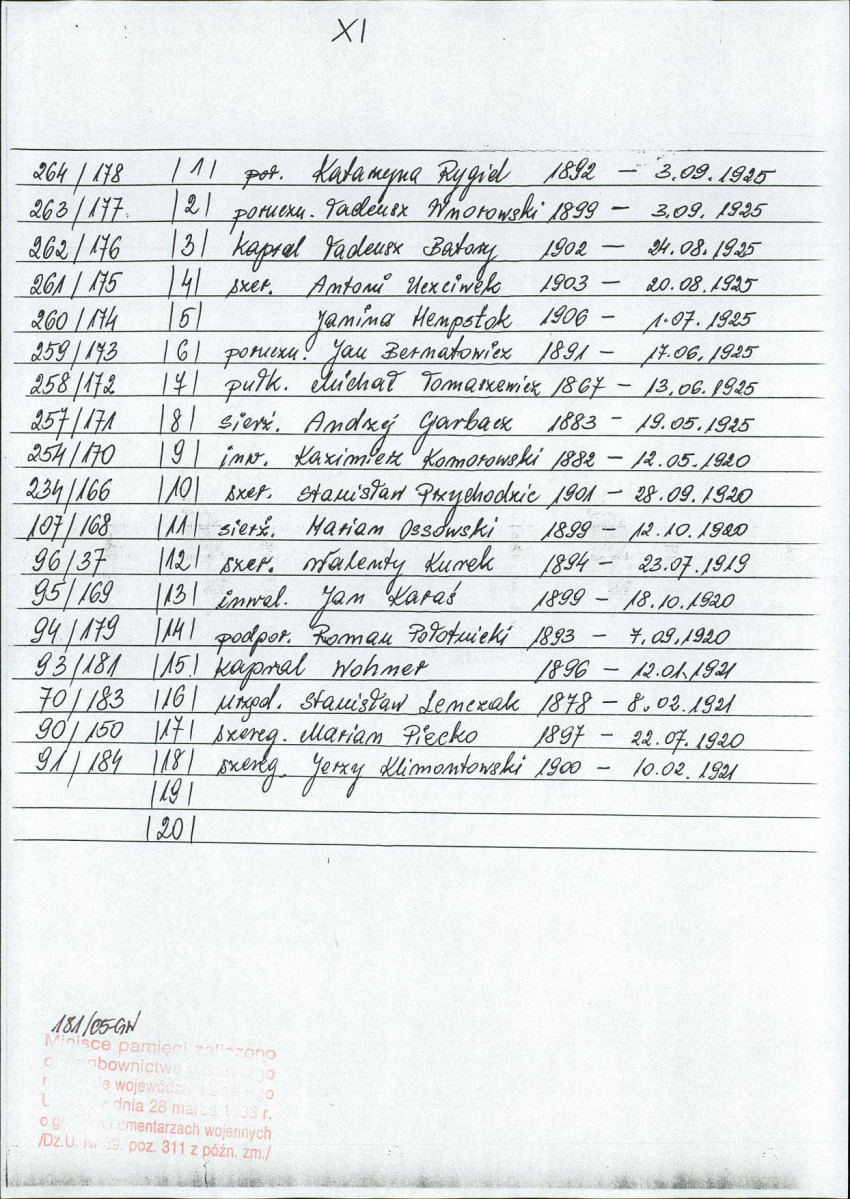 XI
264/178 |1| por. Katarzyna Rygiel 1892 – 3.09.1925
263/177. |2| poruczn. Tadeusz Wnorowski 1899 – 3.09.1925
262/176 |3| kapral Tadeusz Batory 1902 – 24.08.1925
261/175 |4| szer. Antoni Uczciwek 1903 – 20.08.1925
260/174 |5| Janina Hempstok 1906 – 1.07.1925
259/173 |6| poruczn. Jan Bernatowicz 1891 – 17.06.1925
258/172 |7| pułk. Michał Tomaszewicz 1867 – 13.06.1925
257/171 |8| sierż. Andrzej Garbacz 1883 – 19.05.1925
254/170 |9| inw. Kazimierz Komorowski 1882 – 12.05.1920
234/166 |10| szer. Stanisław Przychodzic 1901 – 28.09.1920
107/168 |11| sierż. Marian Ossowski 1899 – 12.10.1920
96/37 |12| szer. Walenty Kurek 1894 – 23.07.1919
95/169 |13| inwal. Jan Karaś 1899 – 18.10.1920
94/179 |14| podpor. Roman Połotnicki 1893 – 7.09.1920
93/181 |15| kapral Wohner 1896 – 12.01.1921
70/183 |16| urzęd. Stanisław Lenczak 1878 – 8.02.1921
90/150 |17| szereg. Marian Piećko 1897 – 22.07.1920
91/184 |18| szereg. Jerzy Klimontowski 1900 – 10.02.1921
|19|
|20|
181/05-GW
Miejsce pamięci zaliczono
dnia 28 marca r.
cmentarzach wojennych
/Dz.U. poz. 311 z późn. zm./